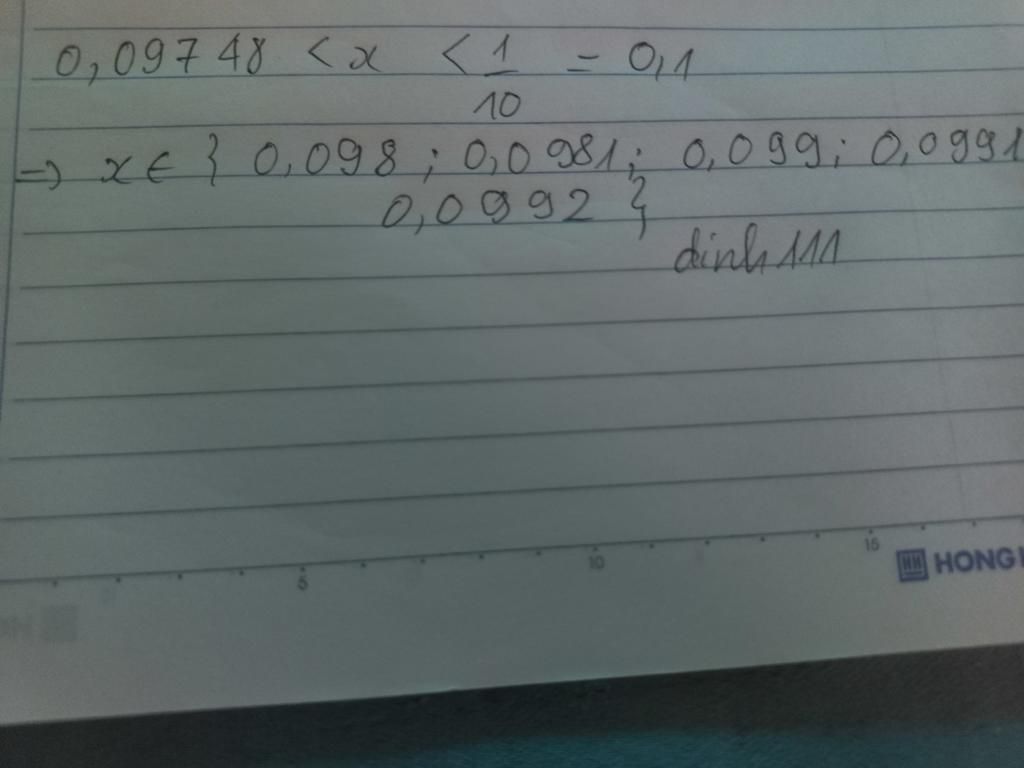 0,09748 < x < 1/10 = 0,1
=> x ∈ } 0,098 ; 0,0981; 0,099; 0,0991
0,0992 }
dinh111
5 10 15
HONG